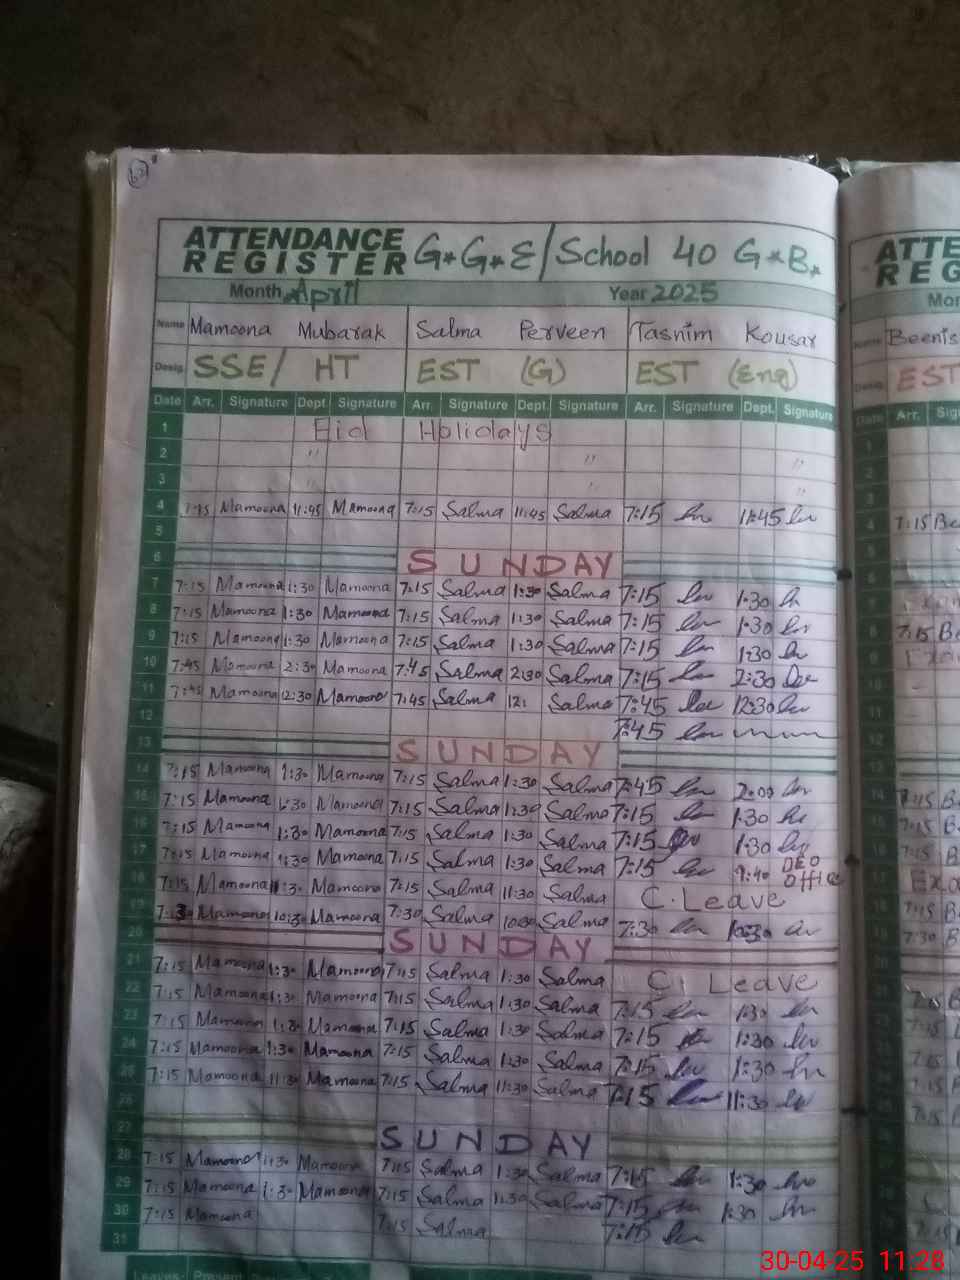 62
ATTENDANCE REGISTER G*G*E/School 40 G*B*
Month April Year 2025
Name Mamoona Mubarak Salma Perveen Tasnim Kousar
Desig. SSE/ HT EST (G) EST (Eng)
Date Arr. Signature Dept. Signature Arr. Signature Dept. Signature Arr. Signature Dept. Signature
1 Eid Holidays
2 " " "
3 " " "
4 7:15 Mamoona 11:45 Mamoona 7:15 Salma 11:45 Salma 7:15 11:45
5
6 SUNDAY
7 7:15 Mamoona 1:30 Mamoona 7:15 Salma 1:30 Salma 7:15 1:30
8 7:15 Mamoona 1:30 Mamoona 7:15 Salma 1:30 Salma 7:15 1:30
9 7:15 Mamoona 1:30 Mamoona 7:15 Salma 1:30 Salma 7:15 1:30
10 7:45 Mamoona 2:30 Mamoona 7:45 Salma 2:30 Salma 7:15 2:30
11 7:45 Mamoona 12:30 Mamoona 7:45 Salma 12: Salma 7:45 12:30
12 7:45
13 SUNDAY
14 7:15 Mamoona 1:30 Mamoona 7:15 Salma 1:30 Salma 7:45 2:00
15 7:15 Mamoona 1:30 Mamoona 7:15 Salma 1:30 Salma 7:15 1:30
16 7:15 Mamoona 1:30 Mamoona 7:15 Salma 1:30 Salma 7:15 1:30
17 7:15 Mamoona 1:30 Mamoona 7:15 Salma 1:30 Salma 7:15 9:40 DEO Office
18 7:15 Mamoona 11:30 Mamoona 7:15 Salma 11:30 Salma C.Leave
19 7:30 Mamoona 10:30 Mamoona 7:30 Salma 10:30 Salma 7:30 10:30
20 SUNDAY
21 7:15 Mamoona 1:30 Mamoona 7:15 Salma 1:30 Salma C. Leave
22 7:15 Mamoona 1:30 Mamoona 7:15 Salma 1:30 Salma 7:15 1:30
23 7:15 Mamoona 1:30 Mamoona 7:15 Salma 1:30 Salma 7:15 1:30
24 7:15 Mamoona 1:30 Mamoona 7:15 Salma 1:30 Salma 7:15 1:30
25 7:15 Mamoona 11:30 Mamoona 7:15 Salma 11:30 Salma 7:15 11:30
26
27 SUNDAY
28 7:15 Mamoona 1:30 Mamoona 7:15 Salma 1:30 Salma 7:15 1:30
29 7:15 Mamoona 1:30 Mamoona 7:15 Salma 1:30 Salma 7:15 1:30
30 7:15 Mamoona 7:15 Salma 7:15
31
Leaves Present
ATTE
REG
Mon
Name Beenis
Desig. EST
Date Arr. Sig
4 7:15 Be
8 7:15 Be
9 Exa
14 7:15 B
15 7:15 B
16 7:15 B
17 Exa
18 7:15 B
19 7:30 B
30-04-25 11:28